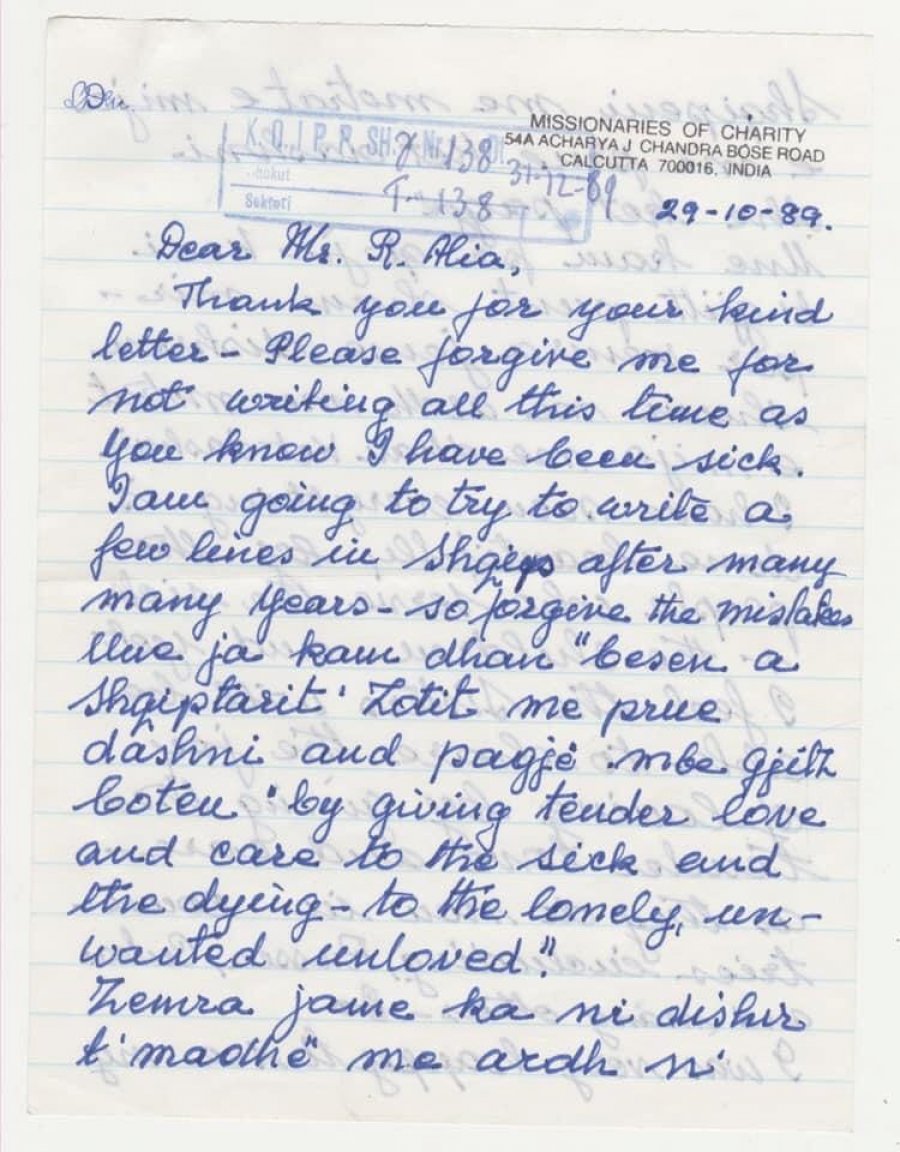 K.Q.I P.P.SH. Nr. 138 Dt.
31-12-89
Sektori T-138
MISSIONARIES OF CHARITY
54A ACHARYA J CHANDRA BOSE ROAD
CALCUTTA 700016, INDIA
29-10-89.
Dear Mr. R. Alia,
Thank you for your kind
letter - Please forgive me for
not writing all this time as
you know I have been sick.
I am going to try to write a
few lines in Shqip after many
many years - so forgive the mistakes
Une ja kam dhan "besen a
Shqiptarit' Zotit me prue
dashni and pagjë mbe gjith
boten" by giving tender love
and care to the sick and
the dying - to the lonely, un-
wanted unloved".
Zemra jame ka ni dishir
t'madhë me ardh ni